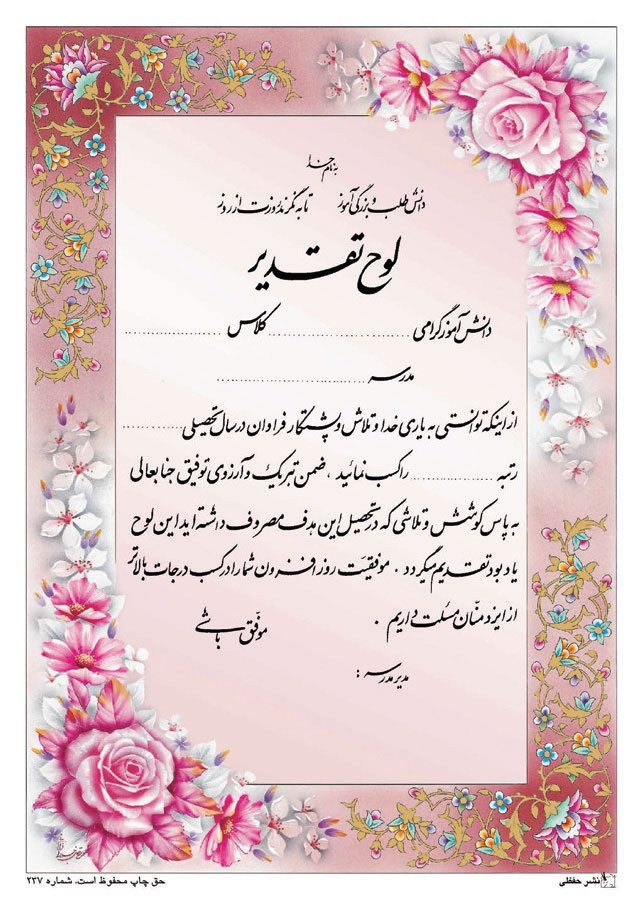 بنام خدا
دانش طلب و بزرگی آموز تا به نگرند روزت از روز
لوح تقدیر
دانش آموز گرامی .................... کلاس ....................
مدرسه ....................
از اینکه توانستی به یاری خدا و تلاش و پشتکار فراوان در سال تحصیلی ............
رتبه ............ را کسب نمائید ، ضمن تبریک و آرزوی توفیق جنابعالی
به پاس کوشش و تلاشی که در تحصیل این هدف مصروف داشته اید این لوح
یادبود تقدیم میگردد . موفقیت روز افزون شما را در کسب درجات بالاتر
از ایزد منّان مسئلت داریم .
موفّق باشی
مدیر مدرسه :
نشر حفظی
حق چاپ محفوظ است. شماره ۲۳۷